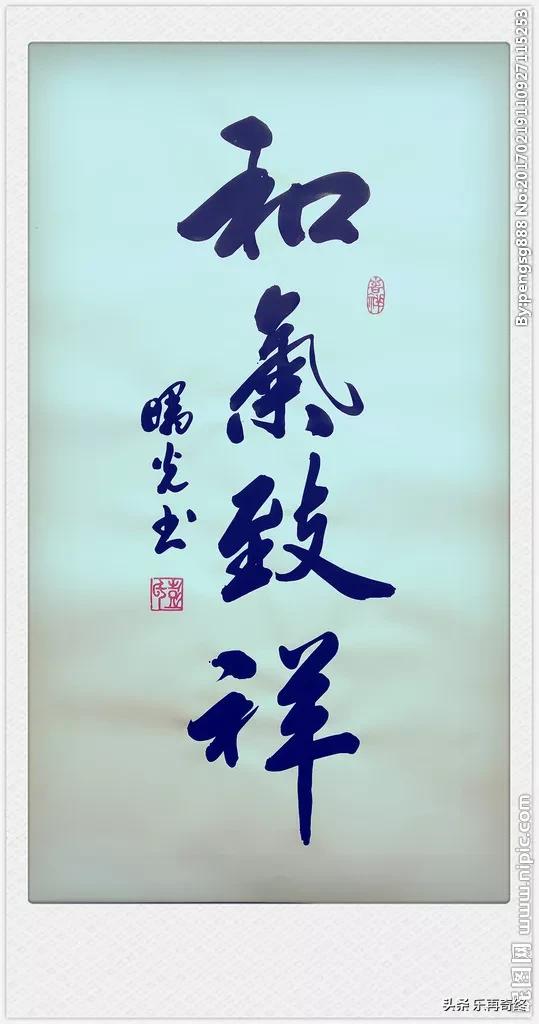 和氣致祥
曙光书
By:pengsg888 No:20170219110927115253
www.nipic.com
头条 乐再奇终